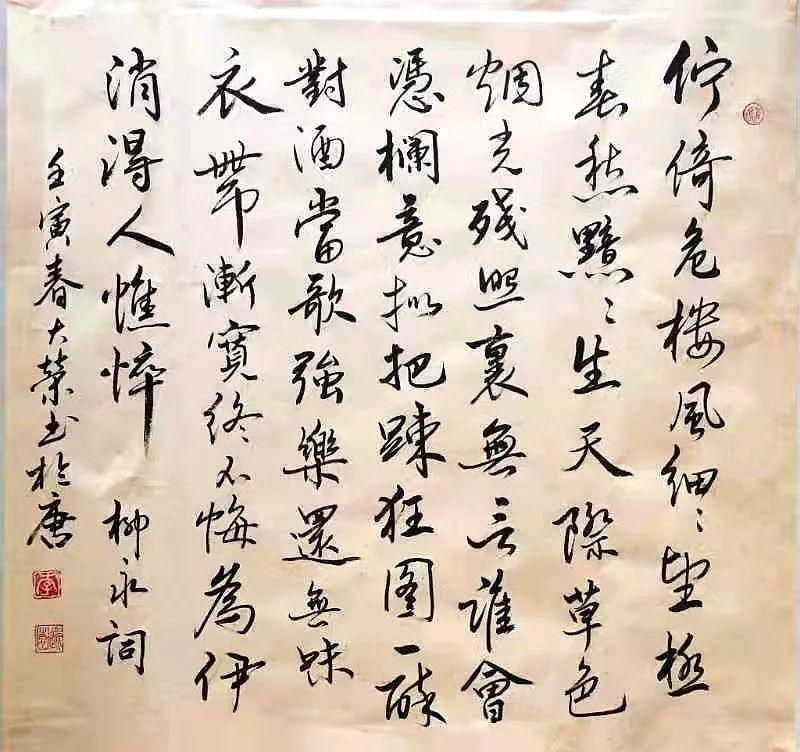 佇倚危楼風細〻望極
春愁黯〻生天際草色
烟光殘照裏無言誰會
憑欄意拟把踈狂图一醉
對酒當歌強樂還無味
衣帶漸寬终不悔為伊
消得人憔悴 柳永词
壬寅春大荣书於唐